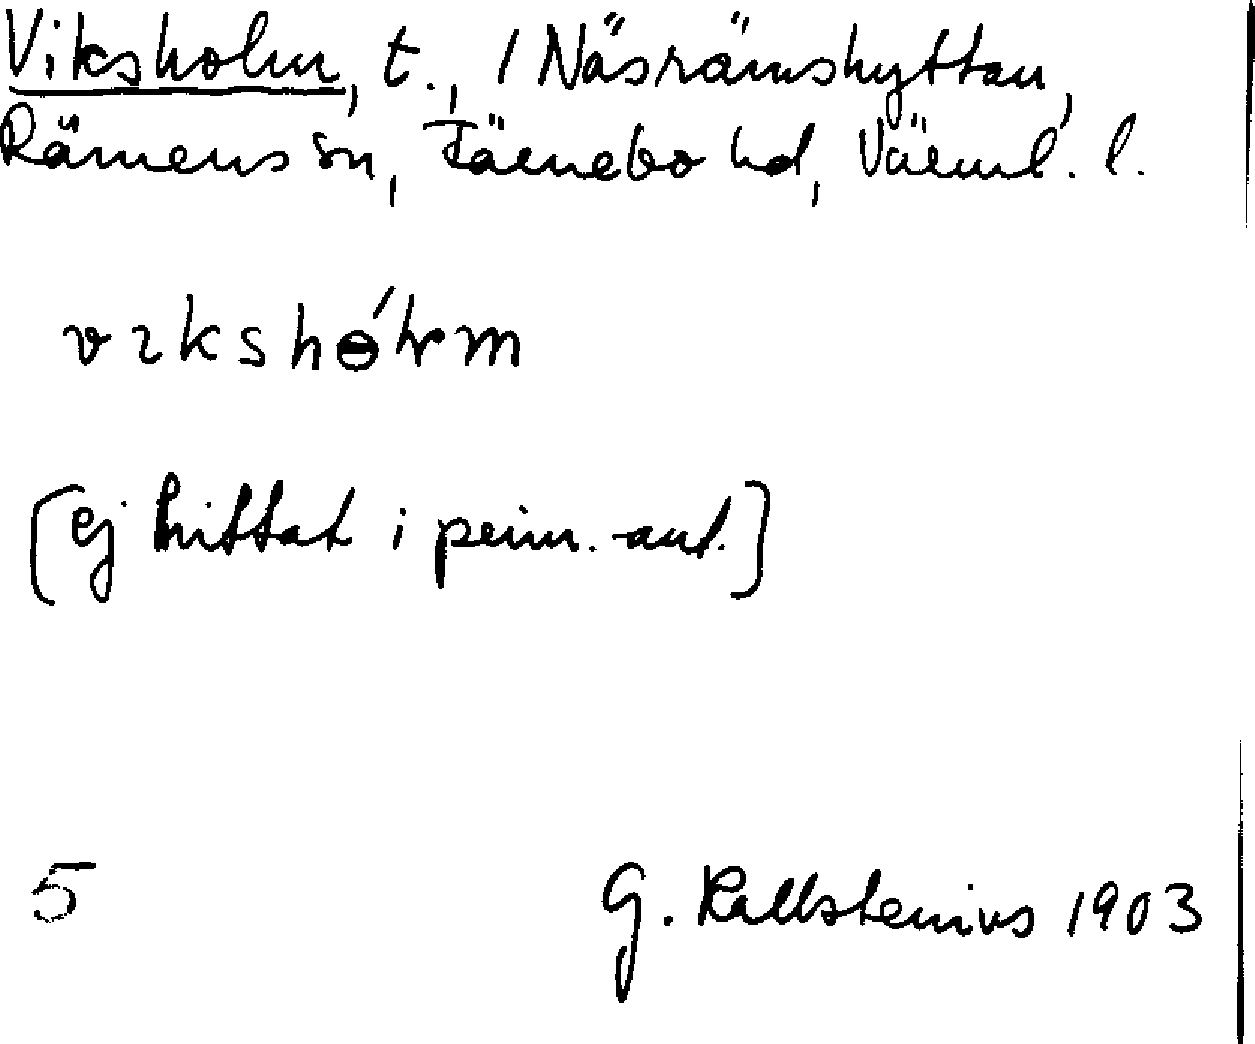 Viksholm, t., / Näsrämshyttan,
Rämens sn, Färnebo hd, Värml. l.
vıkshɵ́lm
[ej hittat i prim.-ant.]
5
G. Kallstenius 1903